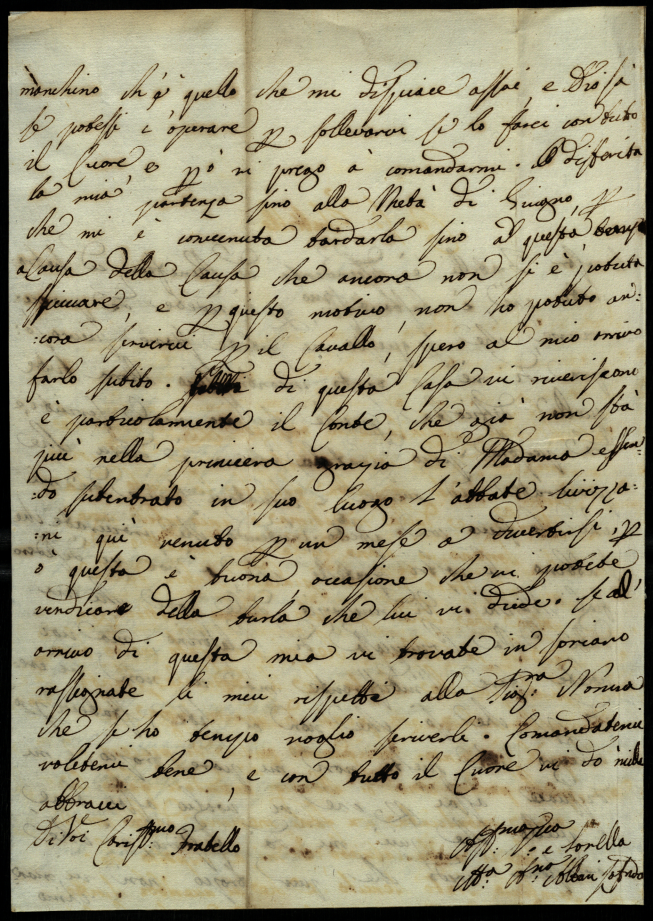 manchino ch'è quello che mi dispiace assai, e Dio sà
se potessi c'operare p sollevarvi se lo farei con tutto
il Cuore e p ò vi prego à comandarmi. differita
la mia partenza sino alla Metà di Giugno, p
che mi è convenuta tardarla sino a questa tempo
a Causa della Causa che ancora non si è potuta
spicciare, e p questo motivo non ho potuto an=
:cora servirvi p il Cavallo, spero al mio arrivo
farlo subito. di questa Casa vi riveriscono
è particolarmente il Conte, che già non stà
più nella primiera grazia di Madama essen=
:do subentrato in suo luogo l'abbate
:ni quì venuto p un mese a divertirsi, p
ò questa è buona occasione che vi potete
vendicare della burla che lui vi diede. se al'
arrivo di questa mia vi trovate in soriano
rassegnate li miei rispetti alla Sig:ra Nonna
che se ho tempo voglio scriverle. Comandatemi
voletemi bene, e con tutto il Cuore vi dò mille
abbracci
Di Voi Cariss:mo Fratello
Aff:ma e Sorella